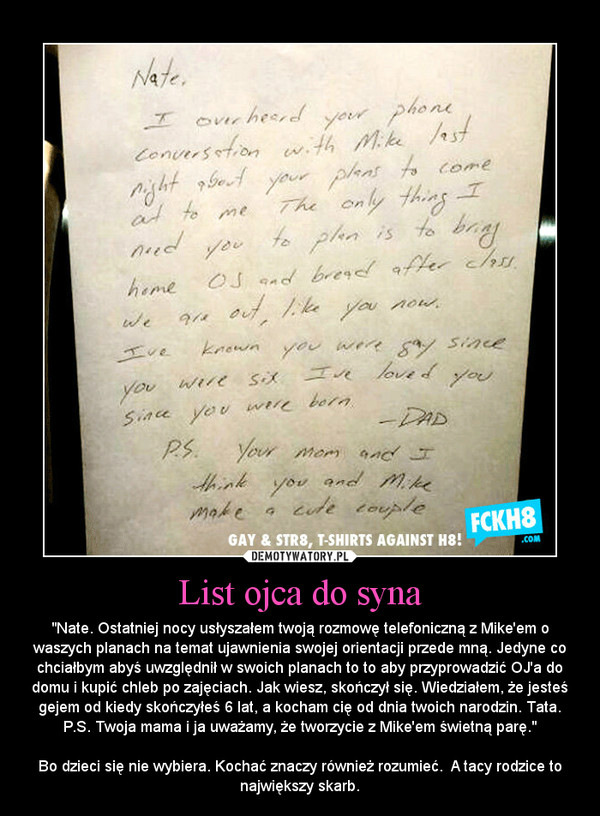 Nate,
I overheard your phone
conversation with Mike last
night about your plans to come
out to me The only thing I
need you to plan is to bring
home OJ and bread after class.
We are out, like you now.
Ive known you were gay since
you were six Ive loved you
since you were born.
– DAD
P.S. Your mom and I
think you and Mike
make a cute couple
FCKH8
.COM
GAY & STR8, T-SHIRTS AGAINST H8!
DEMOTYWATORY.PL
List ojca do syna
"Nate. Ostatniej nocy usłyszałem twoją rozmowę telefoniczną z Mike'em o
waszych planach na temat ujawnienia swojej orientacji przede mną. Jedyne co
chciałbym abyś uwzględnił w swoich planach to to aby przyprowadzić OJ'a do
domu i kupić chleb po zajęciach. Jak wiesz, skończył się. Wiedziałem, że jesteś
gejem od kiedy skończyłeś 6 lat, a kocham cię od dnia twoich narodzin. Tata.
P.S. Twoja mama i ja uważamy, że tworzycie z Mike'em świetną parę."
Bo dzieci się nie wybiera. Kochać znaczy również rozumieć. A tacy rodzice to
największy skarb.